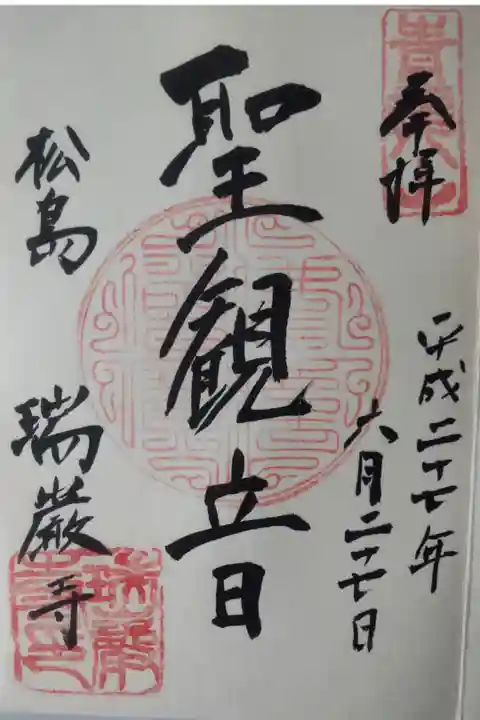 奉拝
平成二十七年
六月二十七日
聖観音
松島
瑞巌寺